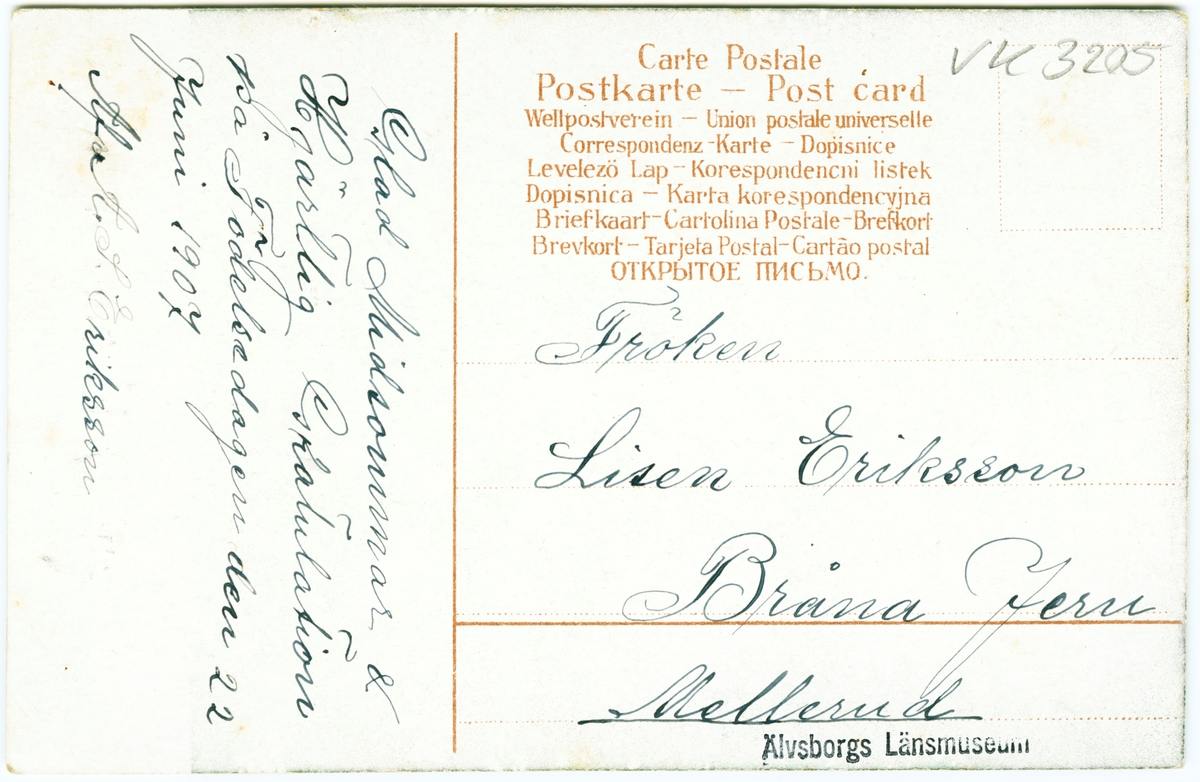 Glad Midsommar &
Hjärtlig Gratulation
på Födelsedagen den 22
Juni 1907
Eriksson
Carte Postale
Postkarte — Post card
Weltpostverein — Union postale universelle
Correspondenz-Karte — Dopisnice
Levelezö Lap — Korespondencni listek
Dopisnica — Karta korespondencyjna
Briefkaart — Cartolina Postale — Brefkort
Brevkort — Tarjeta Postal — Cartão postal
ОТКРЫТОЕ ПИСЬМО.
VK 3205
Fröken
Lisen Eriksson
Bråna Jern
Mellerud
Älvsborgs Länsmuseum